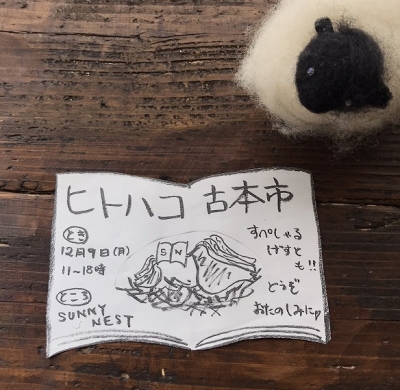 ヒトハコ 古本市
とき
12月9日(月)
11〜18時
ところ
SUNNY
NEST
S N
すぺしゃる
げすと
も!!
どうぞ
おたのしみにゅ